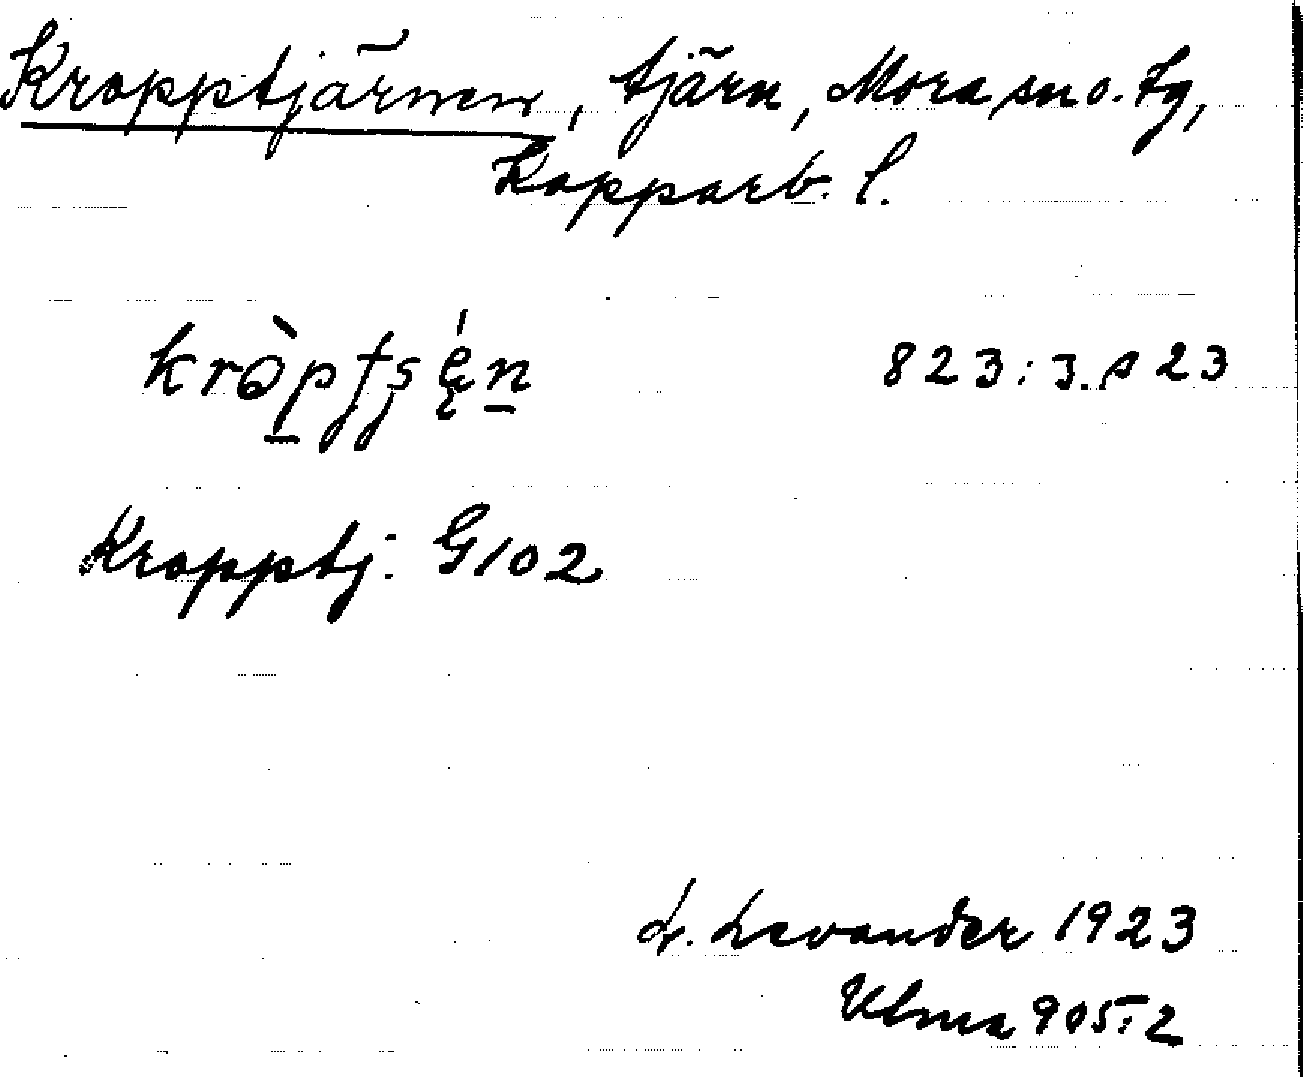 Kropptjärnen, tjärn, Mora sn o. tg,
Kopparb. l.
823:3. s 23
Kropptj: G102
L. Levander 1923
Ulma 905:2